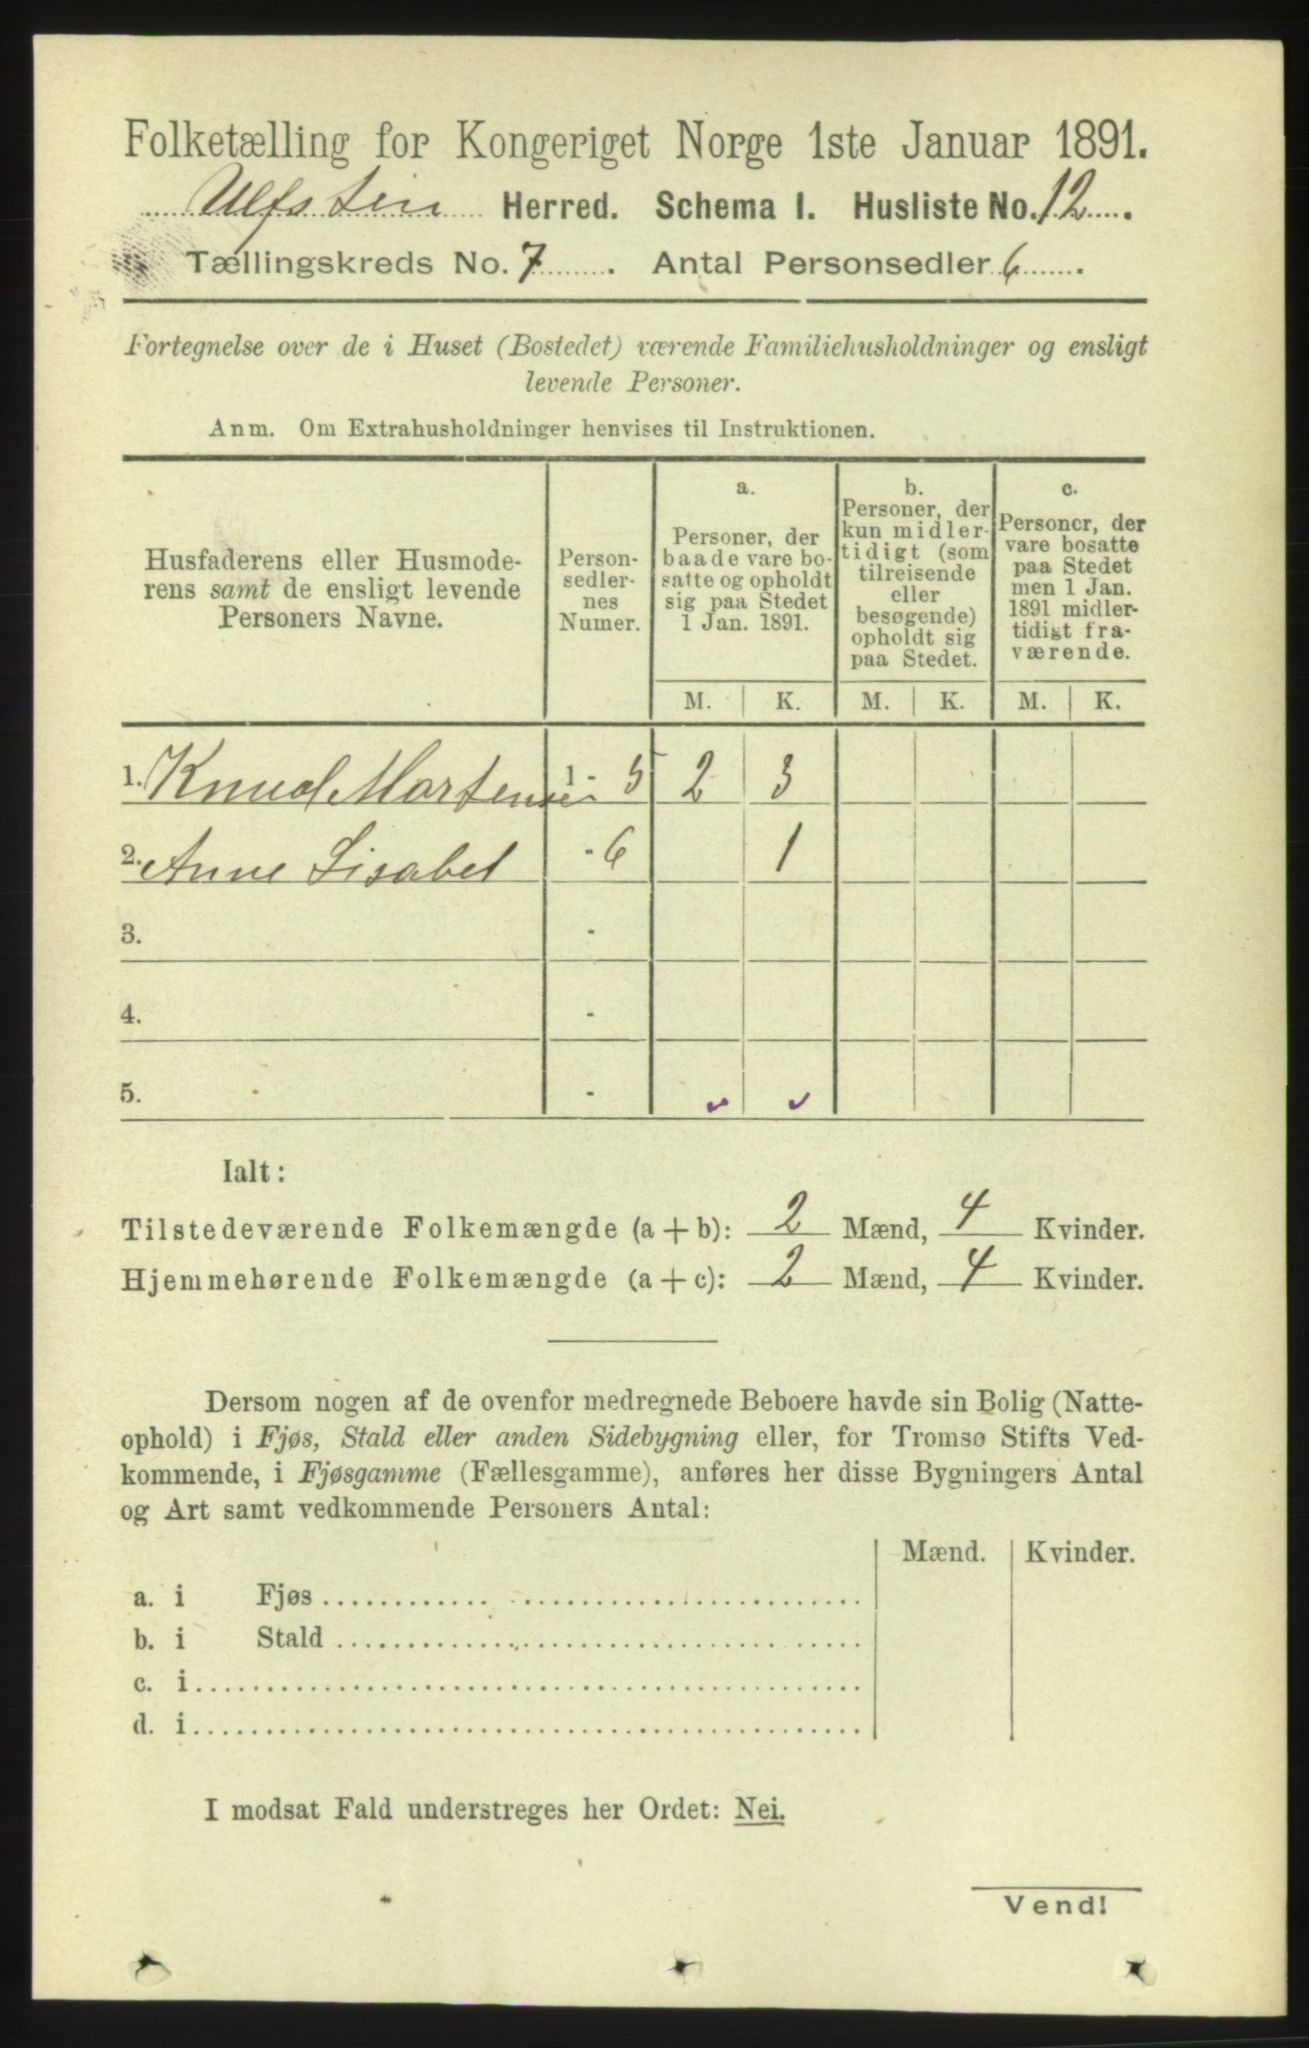 Folketælling for Kongeriget Norge 1ste Januar 1891.
Ulfsten Herred. Schema I. Husliste No. 12
Tællingskreds No. 7. Antal Personsedler 6.
Fortegnelse over de i Huset (Bostedet) værende Familiehusholdninger og ensligt
levende Personer.
Anm. Om Extrahusholdninger henvises til Instruktionen.
Husfaderens eller Husmode-
rens samt de ensligt levende
Personers Navne.
Person-
sedler-
nes
Numer.
a.
Personer, der
baade vare bo-
satte og opholdt
sig paa Stedet
1 Jan. 1891.
b.
Personer, der
kun midler-
tidigt (som
tilreisende
eller
besøgende)
opholdt sig
paa Stedet.
c.
Personer, der
vare bosatte
paa Stedet
men 1 Jan.
1891 midler-
tidigt fra-
værende.
M. K. M. K. M. K.
1. Knud Martensen 1 - 5 2 3
2. Anne Lisabet - 6 1
3. -
4. -
5. -
Ialt:
Tilstedeværende Folkemængde (a + b): 2 Mænd, 4 Kvinder.
Hjemmehørende Folkemængde (a + c): 2 Mænd, 4 Kvinder.
Dersom nogen af de ovenfor medregnede Beboere havde sin Bolig (Natte-
ophold) i Fjøs, Stald eller anden Sidebygning eller, for Tromsø Stifts Ved-
kommende, i Fjøsgamme (Fællesgamme), anføres her disse Bygningers Antal
og Art samt vedkommende Personers Antal:
Mænd. Kvinder.
a. i Fjøs
b. i Stald
c. i
d. i
I modsat Fald understreges her Ordet: Nei.
Vend!